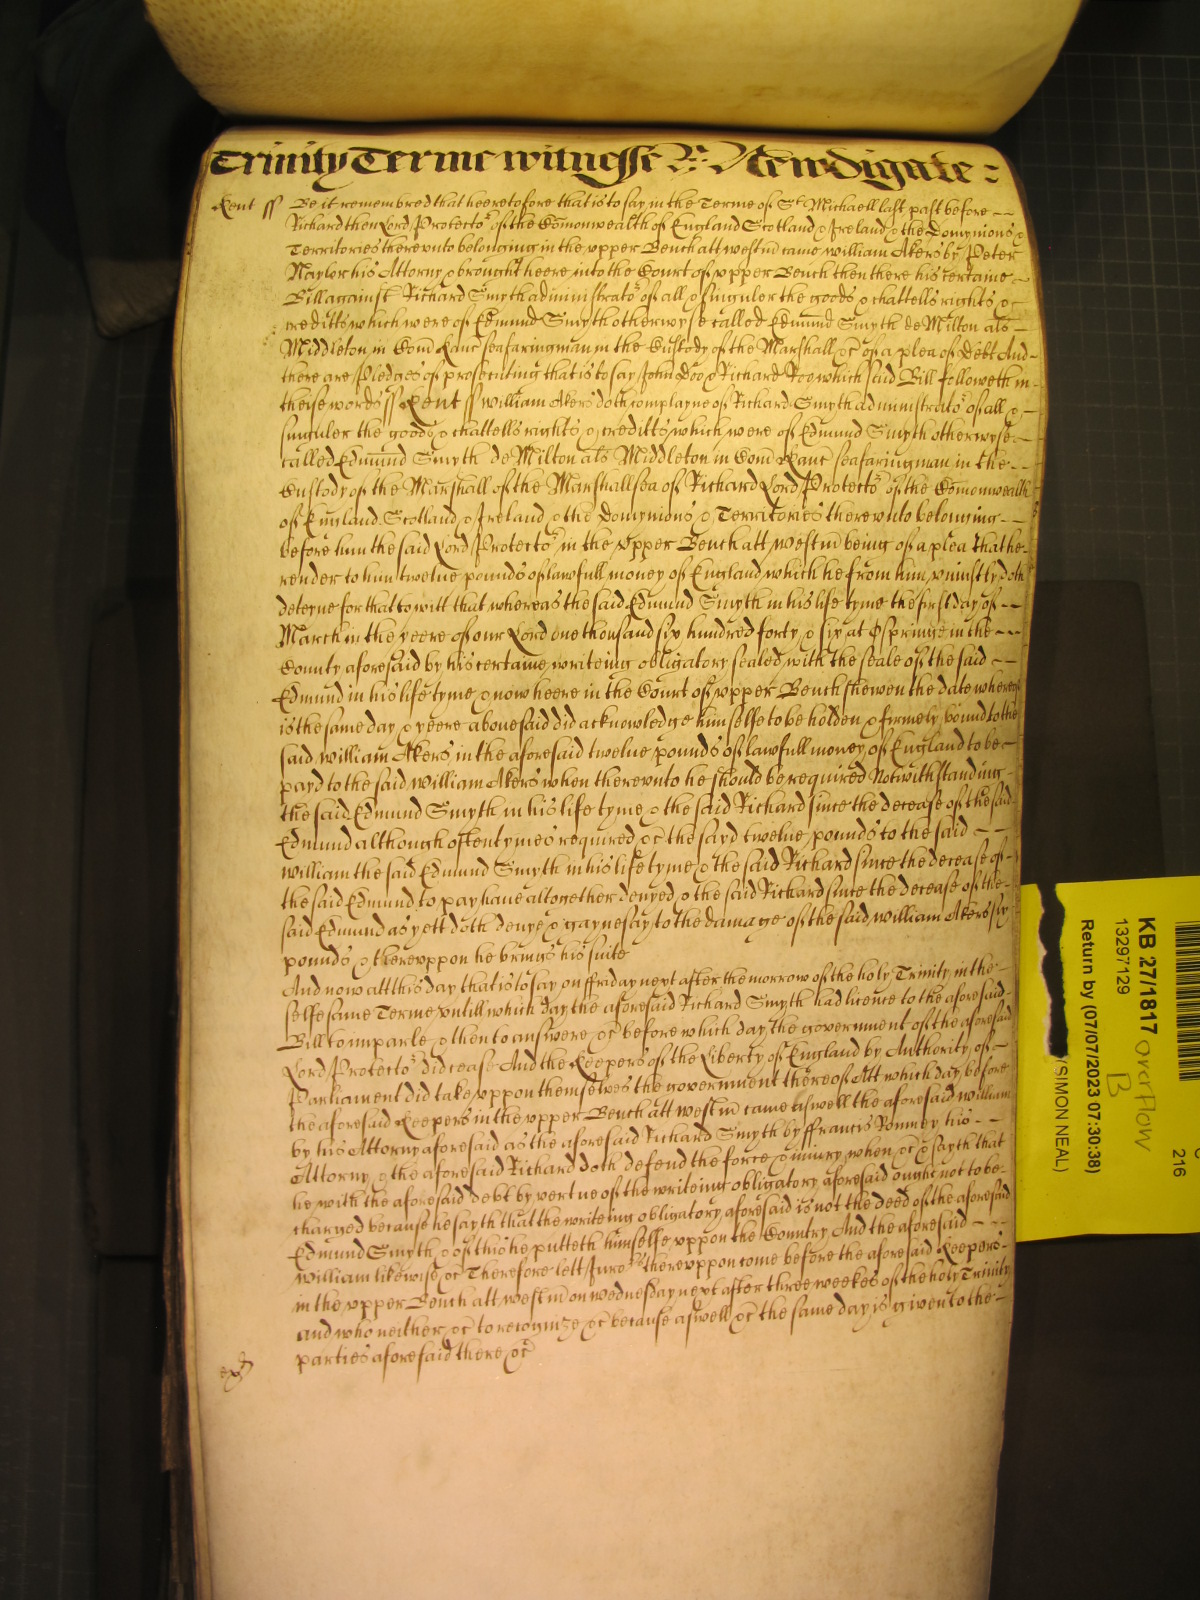 Trinity Terme witnesse R: Newdigate:
Kent ss Be it remembred that heeretofore that is to say in the Terme of St Michaell last past before
Richard then Lord Protector of the Comonwealth of England Scotland & Ireland & the Dominions &
Territories therevnto belonging in the vpper Bench att Westm came William Akers by Peter
Naylor his Attorny & brought heere into the Court of vpper Bench then there his certaine
Bill against Richard Smyth administrator of all & singuler the goods & chattells rights &
creditts which were of Edmund Smyth otherwyse called Edmund Smyth de Milton als
Middleton in Com Kanc seafaringman in the Custody of the Marshall &c of a plea of Debt And
there are Pledges of prosecuting that is to say John Doo & Richard Roo which said Bill followeth in
theise words ss Kent ss William Akers doth complayne of Richard Smyth administrator of all &
singuler the goods & chattells rights & creditts which were of Edmund Smyth otherwyse
called Edmund Smyth de Milton als Middleton in Com Kanc seafaringman in the
Custody of the Marshall of the Marshallsea of Richard Lord Protector of the Comonwealth
of England Scotland & Ireland & the Dominions & Territories therevnto belonging
before him the said Lord Protector in the vpper Bench att Westm being of a plea that he
render to him twelue pounds of lawfull money of England which he from him vniustly doth
deteyne for that to witt that whereas the said Edmund Smyth in his life tyme the first day of
March in the yeere of our Lord one thousand six hundred forty & six at Ospringe in the
County aforesaid by his certaine writeing obligatory sealed with the seale of the said
Edmund in his life tyme & now heere in the Court of vpper Bench shewen the date whereof
is the same day & yeere abouesaid did acknowledge himselfe to be holden & firmely bound to the
said William Akers in the aforesaid twelue pounds of lawfull money of England to be
payd to the said William Akers when therevnto he should be required Notwithstanding
the said Edmund Smyth in his life tyme & the said Richard since the decease of the said
Edmund although oftentymes required &c the sayd twelue pounds to the said
William the said Edmund Smyth in his life tyme & the said Richard since the decease of
the said Edmund to pay haue altogether denyed & the said Richard since the decease of the
said Edmund as yett doth denye & gaynesay to the damage of the said William Akers six
pounds & therevppon he brings his suite
And now att this day that is to say on ffriday next after the morrow of the holy Trinity in the
selfe same Terme vntill which day the aforesaid Richard Smyth had licence to the aforesaid
Bill to imparle & then to answere &c before which day the government of the aforesaid
Lord Protector did cease And the Keepers of the Liberty of England by Authority of
Parliament did take vppon themselves the government thereof Att which day before
the aforesaid Keepers in the vpper Bench att Westm came aswell the aforesaid William
by his Attorny aforesaid as the aforesaid Richard Smyth by ffrancis Bonney his
Attorny & the aforesaid Richard doth defend the force & iniury when &c & sayth that
he with the aforesaid debt by vertue of the writeing obligatory aforesaid ought not to be
charged because he sayth that the writeing obligatory aforesaid is not the deed of the aforesaid
Edmund Smyth & of this he putteth himselfe vppon the Country And the aforesaid
William likewise &c Therefore lett a Jury therevppon come before the aforesaid Keepers
in the vpper Bench att Westm on wednesday next after three weekes of the holy Trinity
and who neither &c to recognize &c because aswell &c the same day is given to the
parties aforesaid there &c
KB 27/1817 overflow
B
13297129
Return by (07/07/2023 07:30:38)
(SIMON NEAL)
216